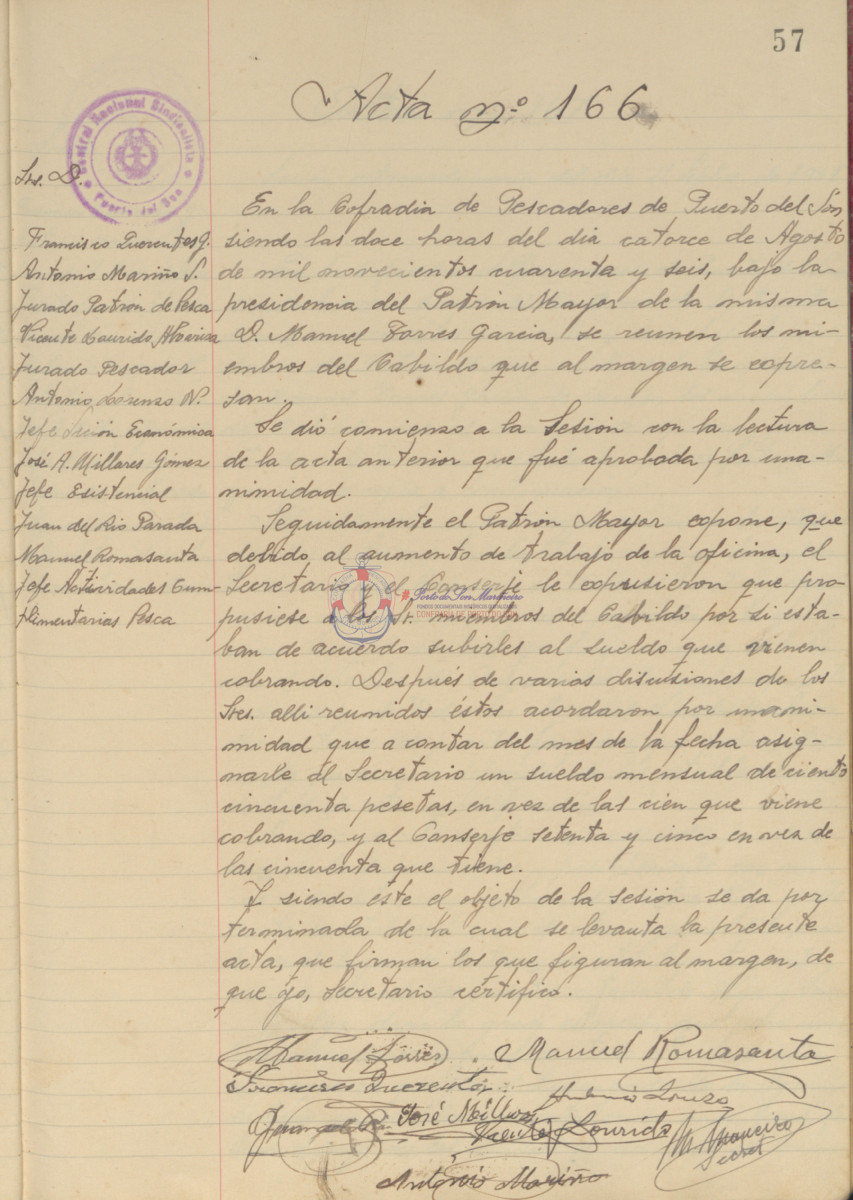 57
Acta nº 166
Central Nacional Sindicalista
Puerto del Son
Srs. D.
Francisco Queruntes G.
Antonio Mariño S.
Jurado Patrón de Pesca
Vicente Lourido
Jurado Pescador
Antonio Lorenzo N.
Jefe Sección Económica
José A. Millares Gómez
Jefe Esistencial
Juan del Rio Parada
Manuel Romasanta
Jefe Actividades Cum-
plimentarias Pesca
En la Cofradia de Pescadores de Puerto del Son
siendo las doce horas del dia catorce de Agosto
de mil novecientos cuarenta y seis, bajo la
presidencia del Patrón Mayor de la misma
D. Manuel Torres Garcia, se reunen los mi-
embros del Cabildo que al margen se expre-
san.
Se dió comienzo a la Sesión con la lectura
de la acta anterior que fué aprobada por una-
nimidad.
Seguidamente el Patrón Mayor expone, que
debido al aumento de trabajo de la oficina, el
Secretario y el Conserje le expusieron que pro-
pusiese a los Sr. miembros del Cabildo por si esta-
ban de acuerdo subirles al sueldo que vienen
cobrando. Después de varias discusiones de los
Sres. alli reunidos éstos acordaron por unani-
midad que a contar del mes de la fecha asig-
narle al Secretario un sueldo mensual de ciento
cincuenta pesetas, en vez de las cien que viene
cobrando, y al Conserje setenta y cinco en vez de
las cincuenta que tiene.
Y siendo éste el objeto de la sesión se da por
terminada de la cual se levanta la presente
acta, que firman los que figuran al margen, de
que yo, Secretario certifico.
Porto do Son Mariñeiro
Manuel Torres. Manuel Romasanta
Francisco
Antonio
José Millares
Vicente Lourido
Secret
Antonio Mariño